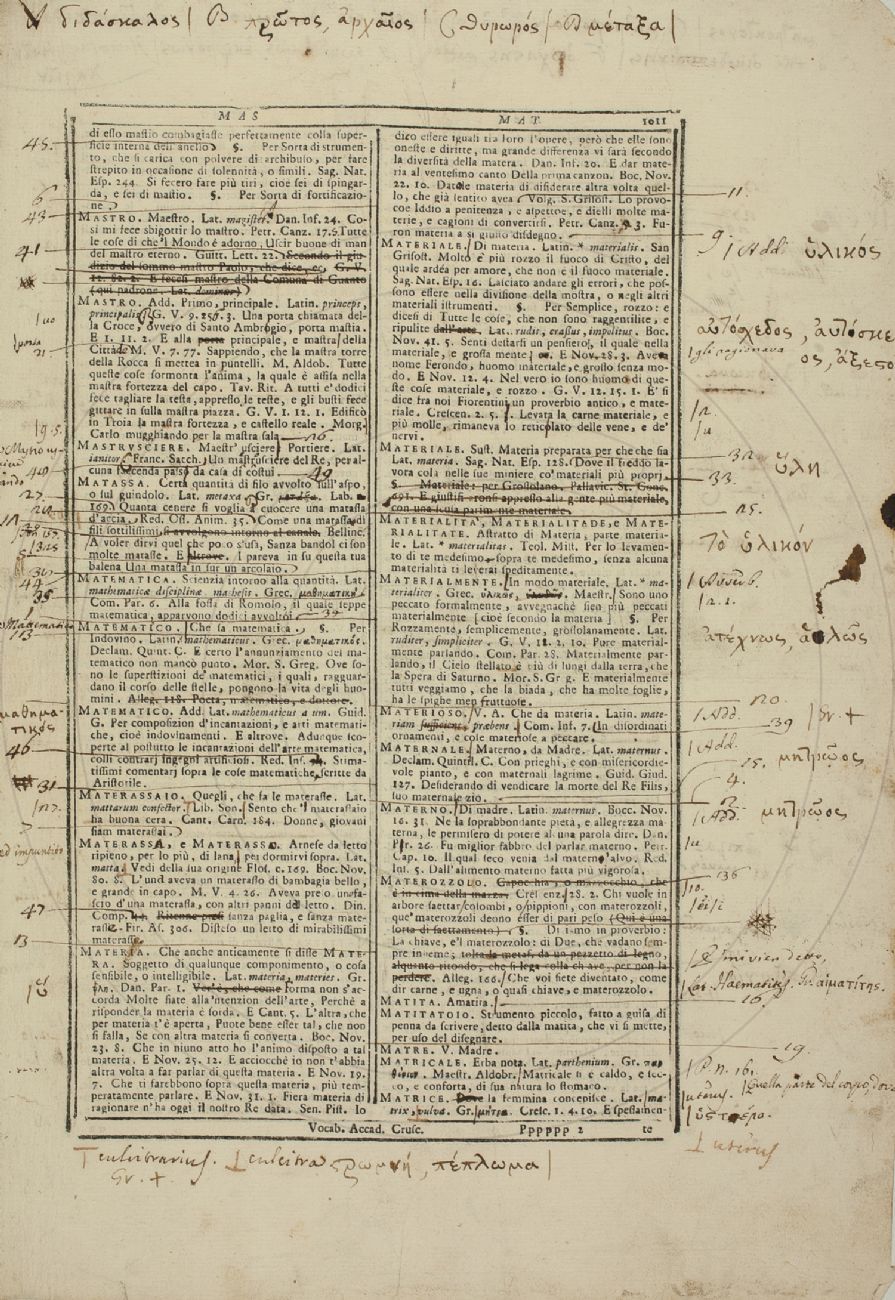 διδάσκαλος| B πρῶτος, ἀρχαῖος| C θυρωρός|| D μέταξα|
MAS
MAT. 1011
di esso mastio combagiasse perfettamente colla super-
ficie interna dell'anello §. Per Sorta di strumen-
to, che si carica con polvere di archibuso, per fare
strepito in occasione di solennità, o simili. Sag. Nat.
Esp. 244. Si fecero fare più tiri, cioè sei di spingar-
da, e sei di mastio. §. Per Sorta di fortificazio-
ne
MASTRO. Maestro. Lat. magister. Dan. Inf. 24. Co-
sì mi fece sbigottir lo mastro. Petr. Canz. 17. Tutte
le cose di che'l Mondo è adorno, Uscir buone di man
del mastro eterno. Guitt. Lett. 22. Secondo il giu-
dizio del sommo mastro Paolo, che dice, ec. G. V.
12. 82. 2. E fecesi mastro della Comuna di Guanto
(qui padrone. Lat. dominus)
MASTRO. Add. Primo, principale. Latin. princeps,
principalis G. V. 9. 256. 3. Una porta chiamata del-
la Croce, ovvero di Santo Ambrogio, porta mastia.
E 1. 11. 2. E alla porta principale, e mastra della
Cittade M. V. 7. 77. Sappiendo, che la mastra torre
della Rocca si mettea in puntelli. M. Aldob. Tutte
queste cose formonta l'anima, la quale è assisa nella
mastra fortezza del capo. Tav. Rit. A tutti e' dodici
fece tagliare la testa, appresso le teste, e gli busti fece
gittare in sulla mastra piazza. G. V. 1. 12. 1. Edificò
in Troia la mastra fortezza, e castello reale. Morg.
Carlo mugghiando per la mastra sala
MASTRUSCIERE. Maestr' usciere, Portiere. Lat.
ianitor Franc. Sacch. Un mastrusciere del Re, per al-
cuna faccenda passò da casa di costui
MATASSA. Certa quantità di filo avvolto sull'aspo,
o sul guindolo. Lat. metaxa Gr. μέταξα. Lab.
169. Quanta cenere si voglia a cuocere una matassa
d'accia. Red. Oss. Anim. 35. Come una matassa di
fili sottilissimi, si avvolgono intorno al canale. Bellinc.
A voler dirvi quel che po o s'usa, Sanza bandol ci son
molte matasse. E altrove. I pareva in su questa tua
balena Una matassa in sur un arcolaio.
MATEMATICA. Scienzia intorno alla quantità. Lat.
mathematicæ disciplinæ mathesis. Grec. μαθηματικὴ
Com. Par. 6. Alla fossa di Romolo, il quale seppe
matematica, apparvono dodici avvoltoi
MATEMATICO. Che sa matematica §. Per
Indovino. Latin. mathematicus. Grec. μαθηματικός.
Declam. Quint. C. E certo l'annunziamento del ma-
tematico non mancò punto. Mor. S. Greg. Ove so-
no le superstizioni de' matematici, i quali, ragguar-
dano il corso delle stelle, pongono la vita degli huo-
mini. Alleg. 118. Poeta, matematico, e dottore.
MATEMATICO. Add. Lat. mathematicus a um. Guid.
G. Per composizion d'incantazioni, e arti matemati-
che, cioè indovinamenti. E altrove. Adunque sco-
perte al postutto le incantazioni dell'arte matematica,
colli contrarj ingegni artificiosi. Red. Ins. Stima-
tissimi comentarj sopra le cose matematiche, scritte da
Aristotile.
MATERASSAIO. Quegli, che fa le materasse. Lat.
mattarum confector. Lib. Son. Sento che'l materassaio
ha buona cera. Cant. Carn. 184. Donne, giovani
siam materassai.
MATERASSA, e MATERASSO. Arnese da letto
ripieno, per lo più, di lana, per dormirvi sopra. Lat.
matta. Vedi della sua origine Flos. c. 169. Boc. Nov.
80. 8. L'un d aveva un materasso di bambagia bello,
e grande in capo. M. V. 4. 26. Aveva pre o una fa-
scio d'una materassa, con altri panni del letto. Din.
Comp. Ritenne presi sanza paglia, e sanza mate-
rasse. Fir. As. 306. Disteso un letto di mirabilissimi
materassi
MATERIA. Che anche anticamente si disse MATE-
RA. Soggetto di qualunque componimento, o cosa
sensibile, o intelligibile. Lat. materia, materies. Gr.
ὕλη. Dan. Par. 1. Ver'è, che come forma non s'ac-
corda Molte fiate alla 'ntenzion dell'arte, Perchè a
risponder la materia è sorda. E Cant. 5. L'altra, che
per materia t'è aperta, Puote bene esser tal, che non
si falla, Se con altra materia si converta. Boc. Nov.
23. 8. Che in niuno atto ho l'animo disposto a tal
materia. E Nov. 25. 12. E acciocchè io non t'abbia
altra volta a far parlar di questa materia. E Nov. 19.
7. Che ti farebbono sopra questa materia, più tem-
peratamente parlare. E Nov. 31. 1. Fiera materia di
ragionare n'ha oggi il nostro Re data. Sen. Pist. Io
dico essere iguali tra loro l'opere, però che elle sono
oneste e diritte, ma grande differenza vi sarà secondo
la diversità della matera. Dan. Inf. 20. E dar mate-
ria al ventesimo canto Della prima canzon. Boc. Nov.
22. 10. Datole materia di disiderare altra volta quel-
lo, che già sentito avea. Volg. S. Grisost. Lo provo-
co Iddio a penitenza, e aspettoe, e dielli molte ma-
terie, e cagioni di convertirsi. Petr. Canz. 9. 3. Fu-
ron materia a sì giusto disdegno.
MATERIALE. Di materia. Latin. * materialis. San
Grisost. Molto è più rozzo il fuoco di Cristo, del
quale ardéa per amore, che non è il fuoco materiale.
Sag. Nat. Esp. 16. Lasciato andare gli errori, che pos-
sono essere nella divisione della mostra, o negli altri
materiali istrumenti. §. Per Semplice, rozzo: e
dicesi di Tutte le cose, che non sono raggentilite, e
ripulite dall'arte. Lat. rudis, crassus, impolitus. Boc.
Nov. 41. 5. Senti destarsi un pensiero, il quale nella
materiale, e grossa mente. E Nov. 28. 3. Avea
nome Ferondo, huomo materiale, e grosso senza mo-
do. E Nov. 12. 4. Nel vero io sono huomo di que-
ste cose materiale, e rozzo. G. V. 12. 15. 1. E' si
dice fra noi Fiorentini un proverbio antico, e mate-
riale. Crescen. 2. 5. Levata la carne materiale, e
più molle, rimaneva lo reticolato delle vene, e de'
nervi.
MATERIALE. Sust. Materia preparata per che che sia
Lat. materia. Sag. Nat. Esp. 128. Dove il freddo la-
vora cola nelle sue miniere co' materiali più proprj
§. Materiale: per Grossolano. Pallavic. St. Conc.
691. E giustificaronsi appresso alla gente più materiale,
con una scusa parimente materiale.
MATERIALITA', MATERIALITADE, e MATE-
RIALITATE. Astratto di Materia, parte materia-
le. Lat. * materialitas. Teol. Mist. Per lo levamen-
to di te medesimo, sopra te medesimo, senza alcuna
materialità ti leverai speditamente.
MATERIALMENTE. In modo materiale. Lat. * ma-
terialiter. Grec. ὑλικῶς. Maestr. Sono uno
peccato formalmente, avvegnachè sien più peccati
materialmente [cioè secondo la materia] §. Per
Rozzamente, semplicemente, grossolanamente. Lat.
ruditer, simpliciter. G. V. 11. 2. 10. Pure material-
mente parlando. Com. Par. 28. Materialmente par-
lando, il Cielo stellato è più di lungi dalla terra, che
la Spera di Saturno. Mor. S. Gr g. E materialmente
tutti veggiamo, che la biada, che ha molte foglie,
ha le spighe men fruttuose.
MATERIOSO. V. A. Che da materia. Latin. mate-
riam præbens. Com. Inf. 7. In disordinati
ornamenti, e cose materiose a peccare.
MATERNALE. Materno, da Madre. Lat. maternus.
Declam. Quintil. C. Con prieghi, e con misericordie-
vole pianto, e con maternali lagrime. Guid. Giud.
127. Desiderando di vendicare la morte del Re Filis,
suo maternale zio.
MATERNO. Di madre. Latin. maternus. Bocc. Nov.
16. 31. Ne la soprabbondante pietà, e allegrezza ma-
terna, le permisero di potere al una parola dire. Dan.
Pur. 26. Fu miglior fabbro del parlar materno. Petr.
Cap. 10. Il qual seco venia dal matern'alvo. Red.
Inf. 5. Dall'alimento materno fatta più vigorosa.
MATEROZZOLO. Capocchia, o mazzocchio, che
è in cima della mazza. Cresc enz. 28. 2. Chi vuole in
arbore saettar colombi, o pippioni, con materozzoli,
que' materozzoli deono esser di pari peso (Qui è una
sorta di saettamento) §. Diciamo in proverbio:
La chiave, e'l materozzolo: di Due, che vadano sem-
pre insieme; tolta la metaf. da un pezzetto di legno,
alquanto ritondo, che si lega colla chiave, per non la
perdere. Alleg. 166. Che voi siete diventato, come
dir carne, e ugna, o quasi chiave, e materozzolo.
MATITA. Amatita.
MATITATOIO. Strumento piccolo, fatto a guisa di
penna da scrivere, detto dalla matita, che vi si mette,
per uso del disegnare.
MATRE. V. Madre.
MATRICALE. Erba nota. Lat. parthenium. Gr. παρ
θίνιον. Maestr. Aldobr. Matricale è caldo, e sec-
co, e conforta, di sua natura lo stomaco.
MATRICE. Dove la femmina concepisce. Lat. ma-
trix, vulva. Gr. μήτρα. Cresc. 1. 4. 10. E spessamen-
Vocab. Accad. Crusc. Pppppp 2 te
45.
6
43
41
21
49
27
44
35
46
31
47
13
μαθημα-
τικός
11.
9. | Add. ὑλικός
αὐτόσχεδος, αὐτόσκε
32. ὕλη
33.
25.
Τὸ ὑλικόν
| Avverb.
ἀτέχνως, ἁπλῶς
120
| Add. 39 | Gr. +
| Add.
15. μητρῷος
4.
| Add. μητρῷος
136
Lat. Haematites. Gr. αἱματίτης.
16.
19.
| P. N. 16.
uterus. | Quella parte del corpo, dove
| ὑστερο.
| uterus
| culcitrarius. | culcitra στρωμνή, πέπλωμα|
Gr. +